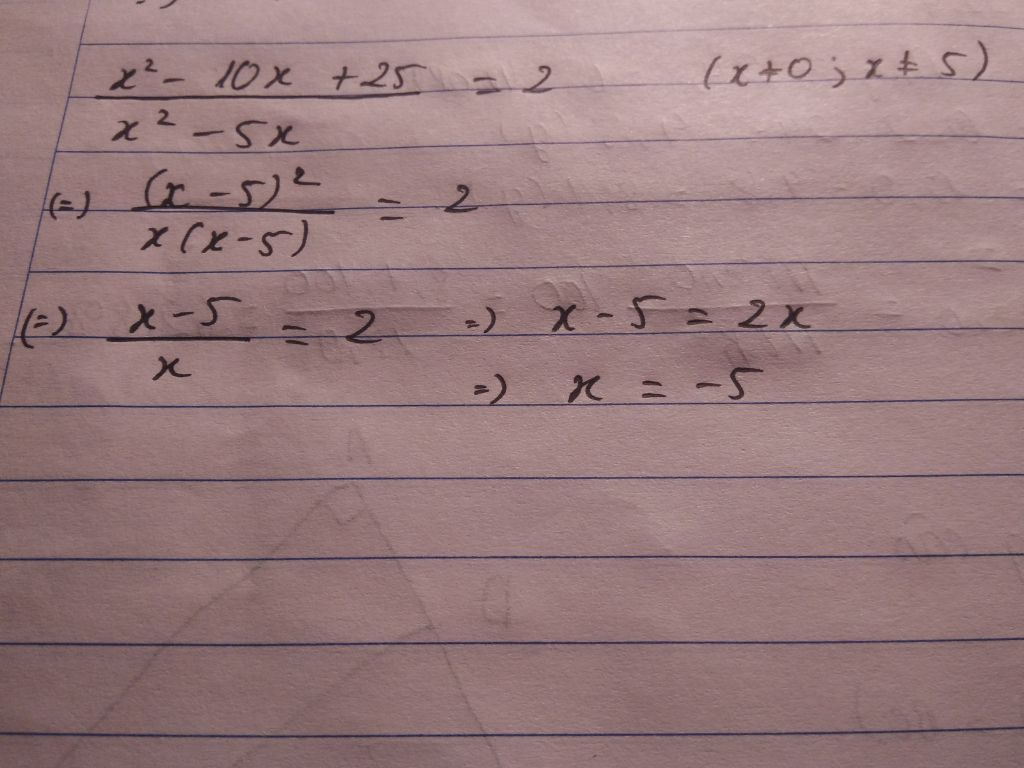 x² - 10x + 25 / x² - 5x = 2 (x ≠ 0 ; x ≠ 5)
(=) (x - 5)² / x(x - 5) = 2
(=) x - 5 / x = 2 =) x - 5 = 2x
=) x = -5